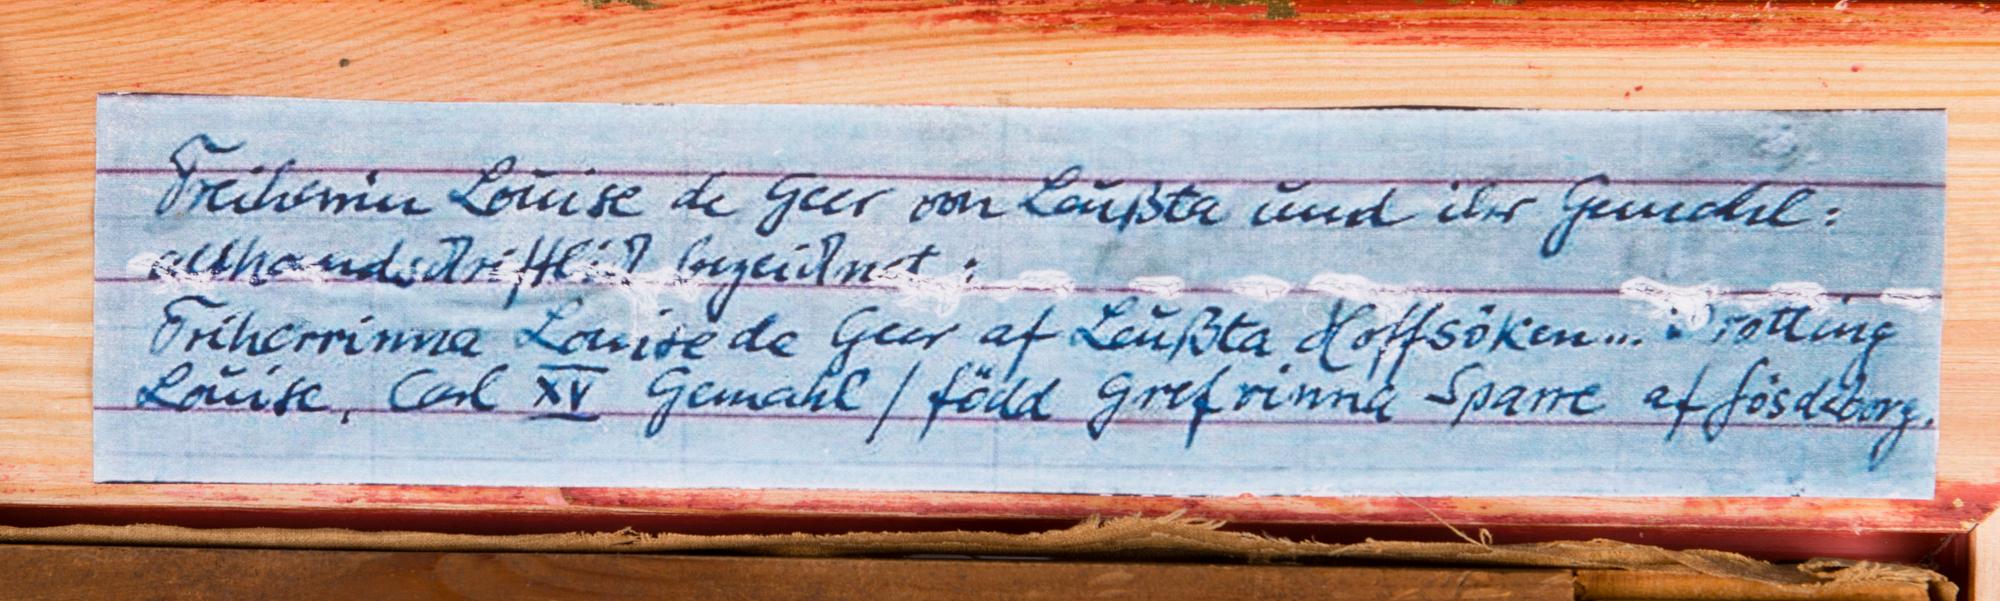 Freiherrin Louise de Geer von Leußta und ihr Gemahl:
althandschriftlich bezeichnet:
Friherrinna Louise de Geer af Leußta Hoffsöken... Drottling
Louise, Carl XV Gemahl / född Grefvinna Sparre af Sösdeborg.